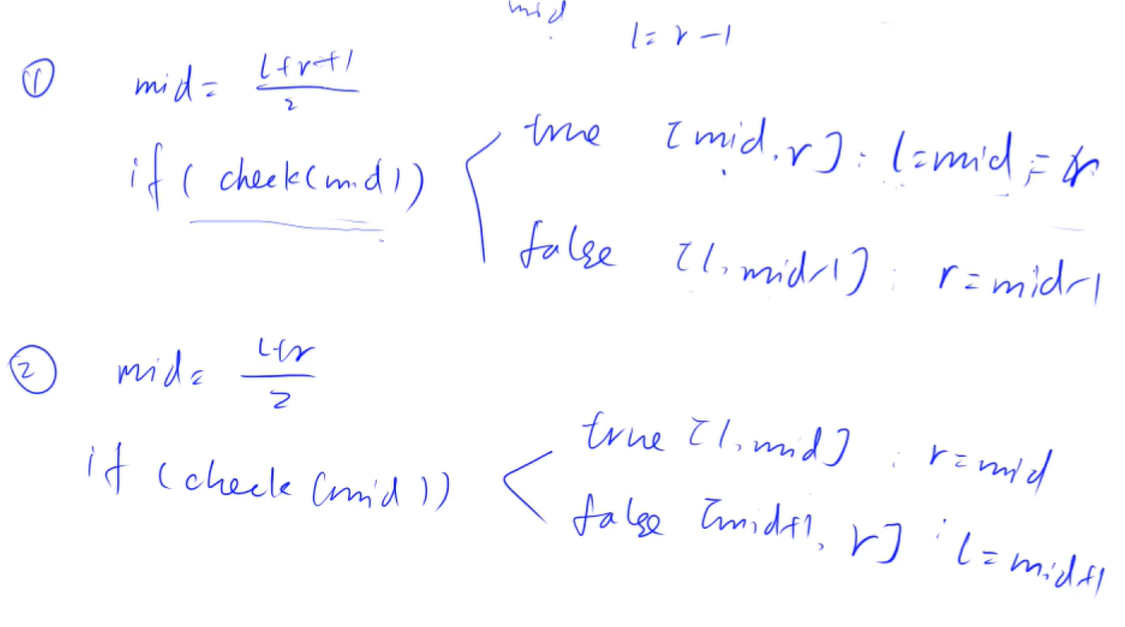 mid
l = r - 1
① mid = (l+r+1)/2
if ( check(mid) )
true [mid, r] : l = mid = r
false [l, mid-1] : r = mid-1
② mid = (l+r)/2
if (check (mid))
true [l, mid] : r = mid
false [mid+1, r] : l = mid+1